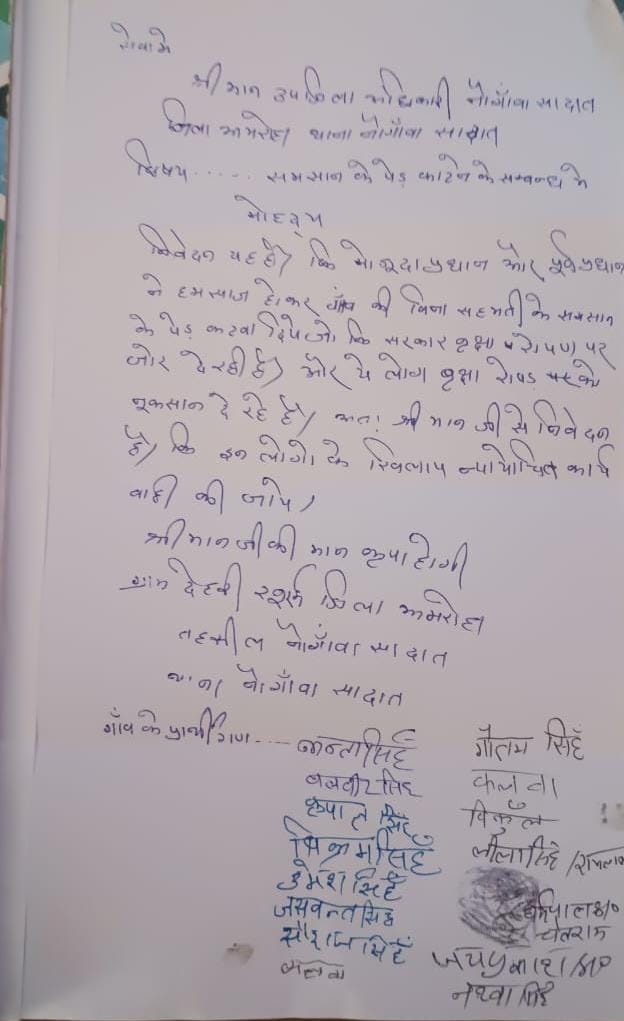 सेवामे
श्री मान उपजिला अधिकारी नौगाँवा सादात
जिला अमरोहा थाना नौगाँवा सादात
विषय ...... समसान के पेड़ काटने के सम्बन्ध मे
मोहदय
निवेदन यह है। कि मोजूदा प्रधान और पूर्व प्रधान
ने हमसाज होकर गाँव की बिना सहमती के समसान
के पेड़ कटवा दिये जो कि सरकार बृक्षा रोपण पर
जोर दे रही है। और ये लोग बृक्षा रोपड़ को
नूकसान दे रहे है। अतः श्री मान जी से निवेदन
है। कि इन लोगो के खिलाप न्यायोचित कार्य
वाही की जाये।
श्री मान जी की मान कृपा होगी
ग्राम देहरी जिला अमरोहा
तहसील नौगाँवा सादात
थाना नौगाँवा सादात
गाँव के प्रार्थीगण .... जन्तासिहँ गौतम सिहँ
बलवीर सिह कलवा
कृपाल सिंह
विक्रम सिंह लीलासिहे
उमेश सिहँ
जसवन्त सिह चेतराम
सौराज सिहँ जयप्रकाश
नथवा सिंह